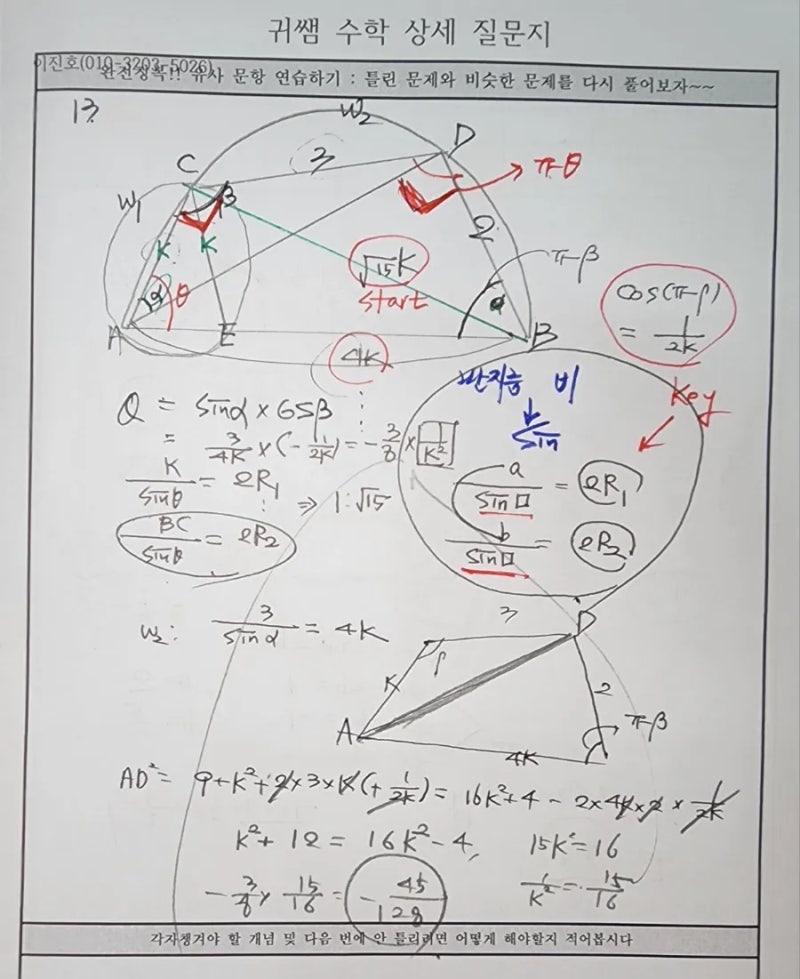 귀쌤 수학 상세 질문지
이진호(010-3203-5026)
완전정복!! 유사 문항 연습하기 : 틀린 문제와 비슷한 문제를 다시 풀어보자~~
13.
W₂
C 3 D
W₁ β π-θ
K K √15K 2 π-β
start
α θ α
A E B
4K
cos(π-β)
= 1/2K
반지름 비
Key
Sin
Q = sinα × cosβ
= 3/4K × (-1/2K) = -3/8 × 1/K²
K/sinθ = 2R₁
⇒ 1:√15
BC/sinθ = 2R₂
a/sin□ = 2R₁
b/sin□ = 2R₂
W₂: 3/sinα = 4K
3 D
K β 2
A 4K π-β
AD² = 9+K²+2×3×K(+1/2K) = 16K²+4 - 2×4K×2×1/2K
K²+12 = 16K²-4, 15K²=16
-3/8 × 15/16 = -45/128 1/K² = 15/16
각자챙겨야 할 개념 및 다음 번에 안 틀리려면 어떻게 해야할지 적어봅시다